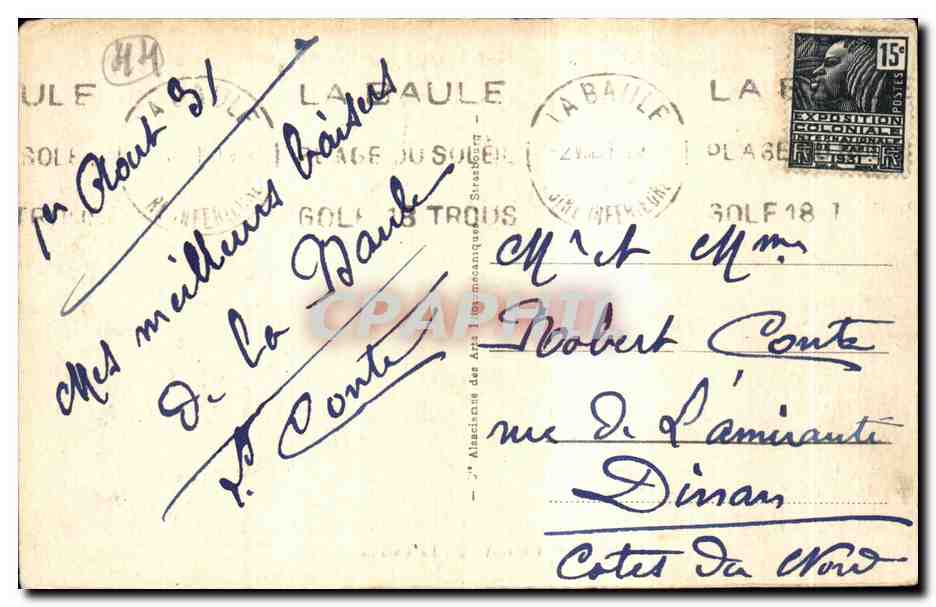 44
1er Aout 31
Mes meilleurs baisers
de La Baule
Conte
ULE
LA BAULE
LA BAULE
LA BAULE
LA B
SOLE
PLAGE DU SOLEIL
PLAGE
GOLF 18 TROUS
GOLF 18 T
LOIRE INFERIEURE
15c
POSTES
EXPOSITION
COLONIALE
INTERNATIONALE
DE PARIS
1931
Cie Alsacienne des Arts Photo-mécaniques, Strasbourg
Mr et Mme
Robert Conte
rue de L'amirauté
Dinan
Cotes du Nord
CPAPHIL